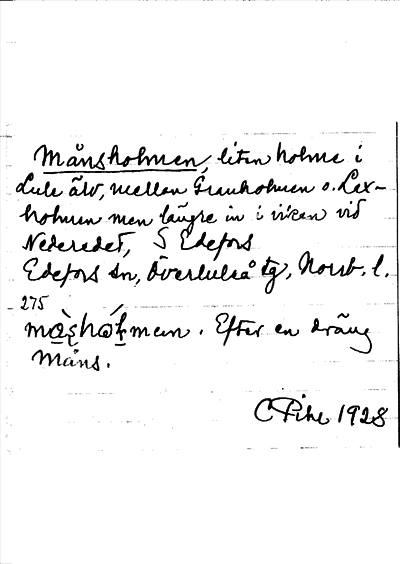 Månsholmen, liten holme i
Lule älv, mellan Granholmen o. Lax-
holmen men längre in i viken vid
Nederedet, S Edefors
Edefors sn, Överluleå tg, Norrb. l.
275
Efter en dräng
Måns.
C Pihl 1928